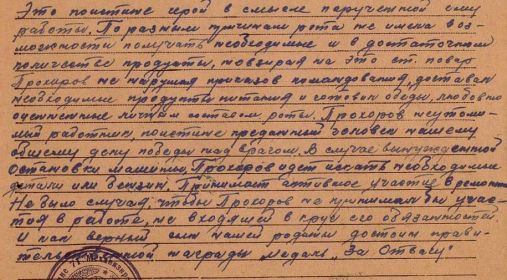 Это поистине герой в смысле порученной ему
работы. По разным причинам рота не имела воз-
можности получать необходимые и в достаточном
количестве продукты, невзирая на это ст. повар
Прохоров не нарушая приказов командования, доставал
необходимые продукты питания и готовил обеды, любовно
оцененные личным составом роты. Прохоров неутоми-
мый работник, поистине преданный человек нашему
общему делу победы над врагом. В случае вынужденной
остановки машины, Прохоров идет искать необходимые
детали или бензин. Принимает активное участие в ремонте
Не было случая, чтобы Прохоров не принимал бы учас-
тия в работе, не входящей в круг его обязанностей
и как верный сын нашей родины достоин прави-
тельственной награды Медаль "За Отвагу"